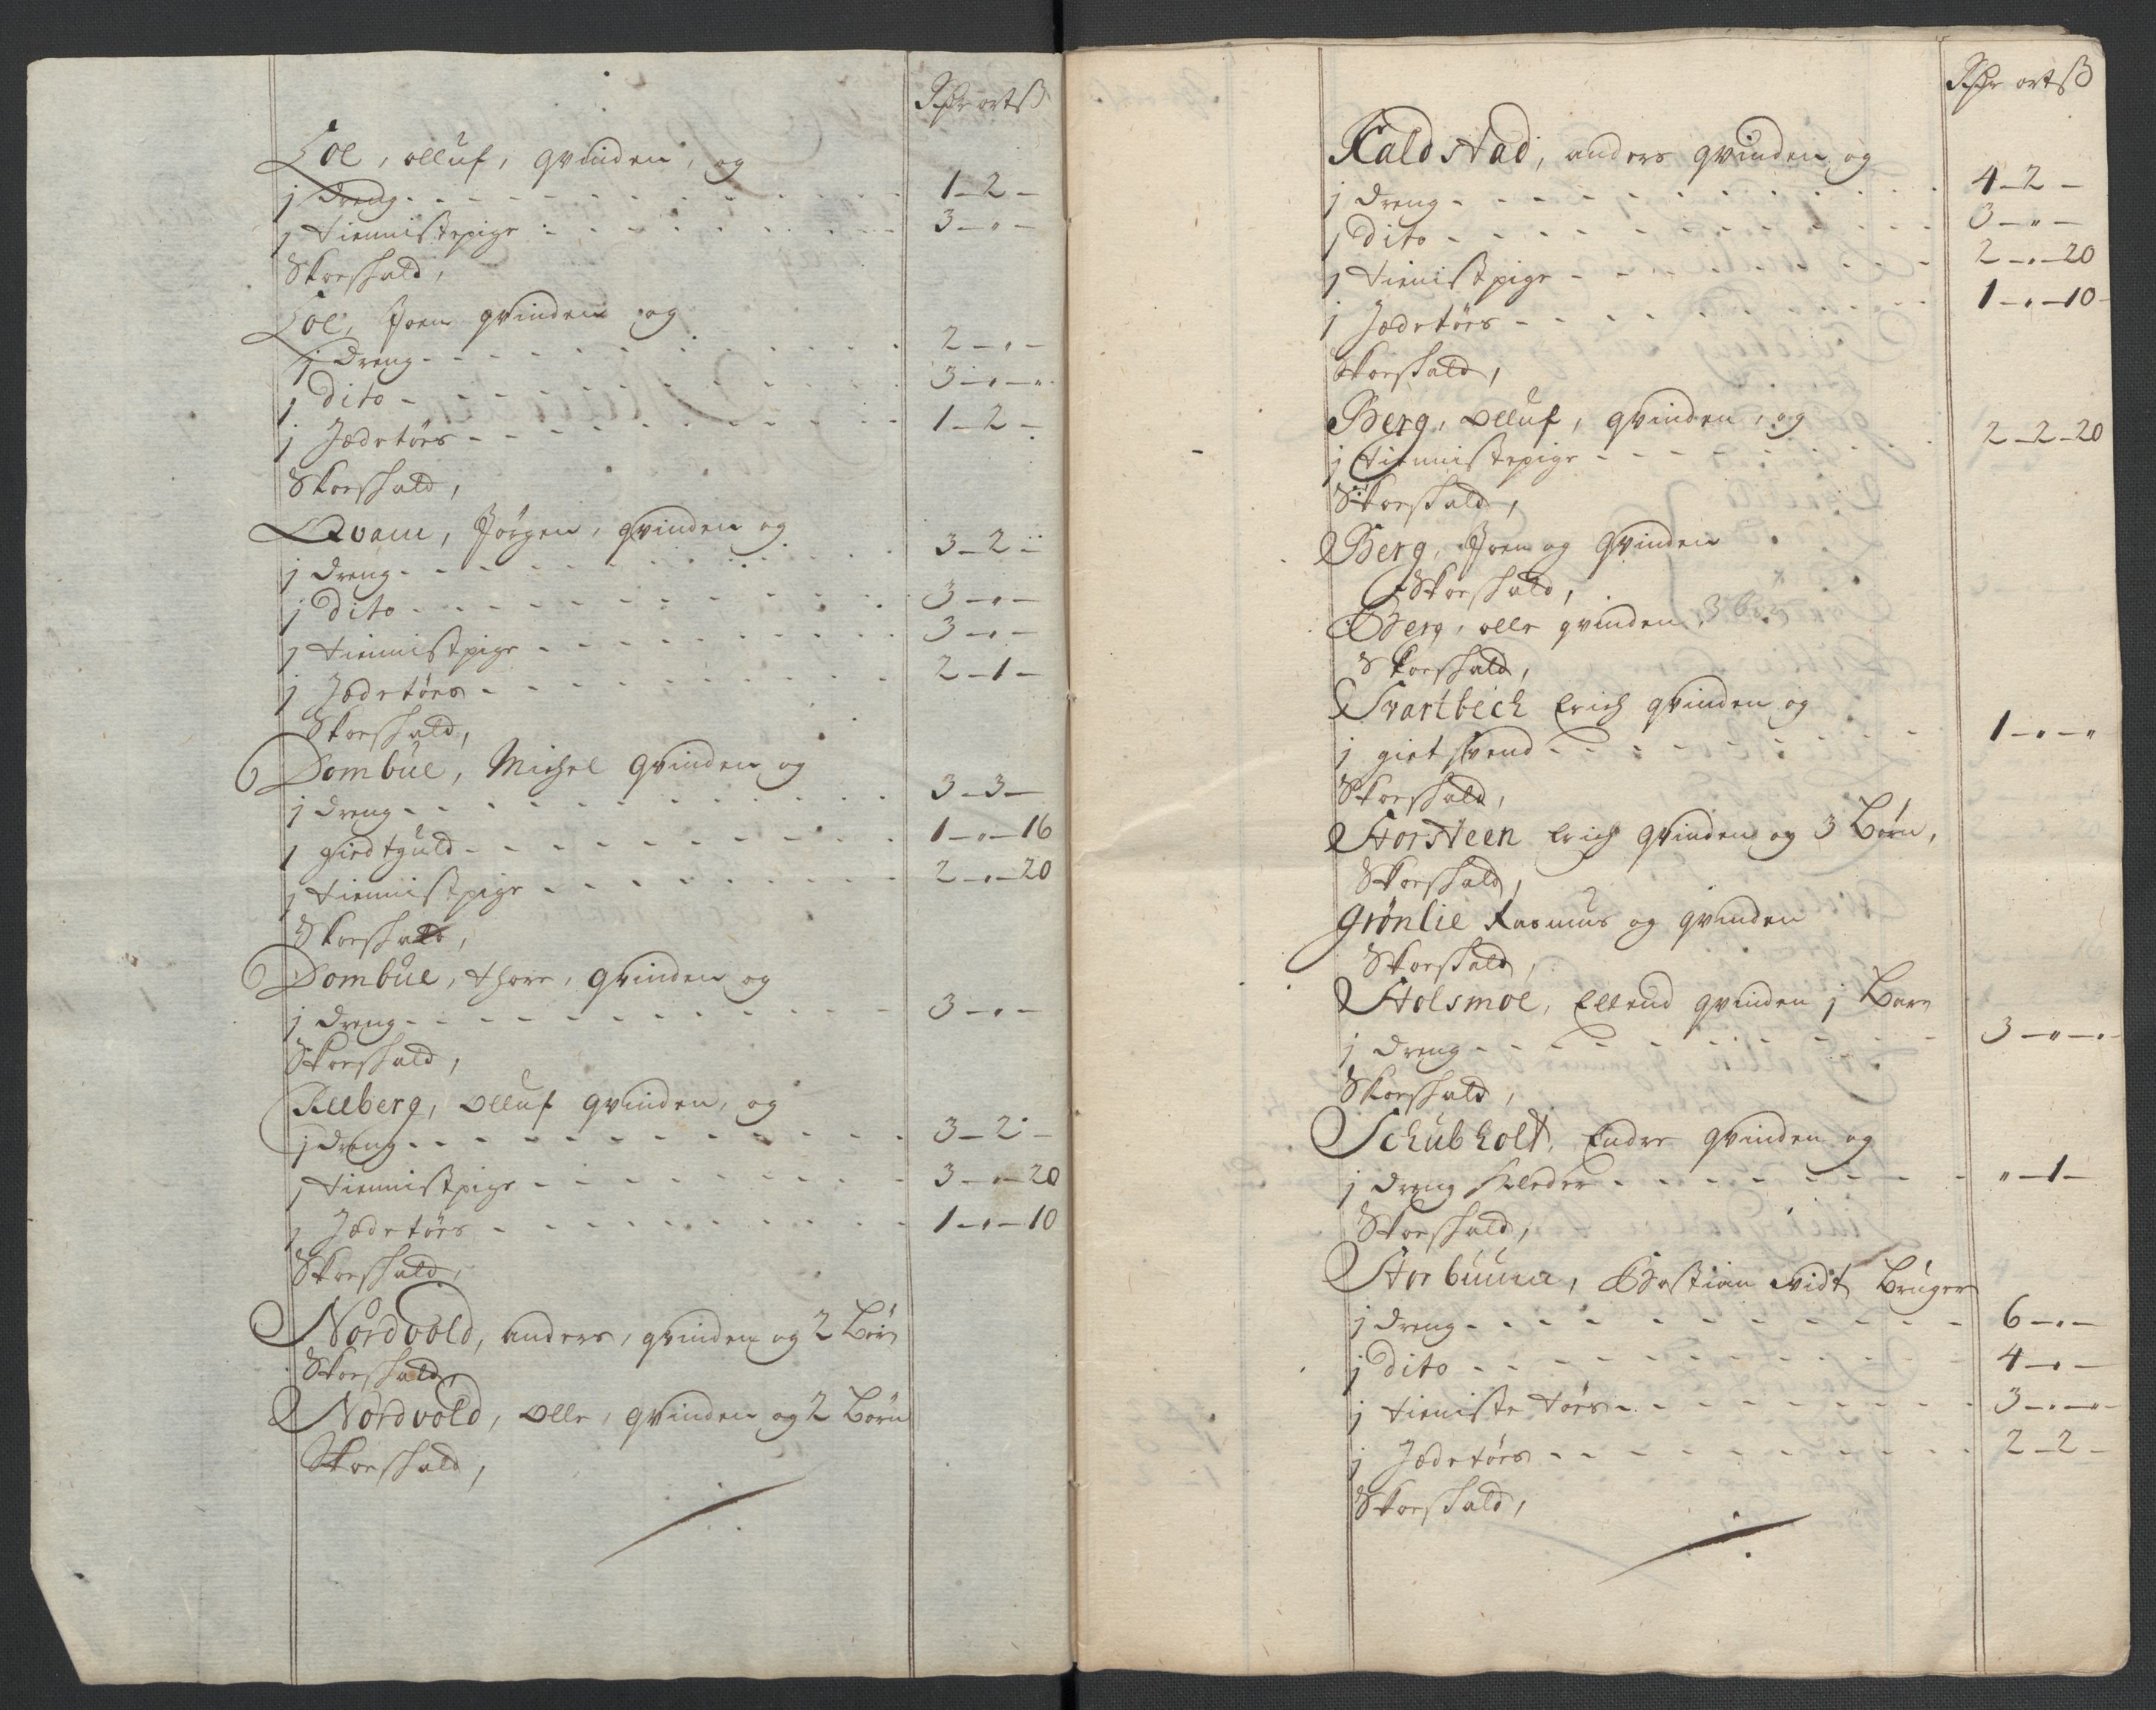 Rdr ort ß
Loe, olluf, qvinden, og
j dreng - - - 1 - 2 -
j tiennistepige - - - 3 - " -
Skoeshald,
Loe, Joen qvinden og
j dreng - - - 2 - " -
j dito - - - 3 - " - "
j Jædetøes - - - 1 - 2 -
Skoeshald,
Qvam, Jørgen, qvinden og
j dreng - - - 3 - 2 -
j dito - - - 3 - " -
j tiennistpige - - - 3 - " -
j Jædetøes - - - 2 - 1 -
Skoeshald,
Dombüe, Michel qvinden og
j dreng - - - 3 - 3 -
1 giedtguld - - - 1 - " - 16
j tiennistpige - - - 2 - " - 20
Skoeshald,
Dombüe, Thore, qvinden og
j dreng - - - 3 - " -
Skoeshald,
Reeberg, olluf qvinden, og
j dreng - - - 3 - 2 -
j tiennistpige - - - 3 - " - 20
j Jædetøes - - - 1 - " - 10
Skoeshald,
Nordvold, anders, qvinden og 2 Børn
Skoeshald,
Nordvold, olle, qvinden og 2 Børn
Skoeshald,
Rdr ort ß
Kaldstad, anders qvinden og
j dreng - - - 4 - 2 -
j dito - - - 3 - " -
j tienistpige - - - 2 - " - 20
j Jædetøes - - - 1 - " - 10 -
Skoeshald,
Berg, olluf, qvinden, og
j tiennistepige - - - 2 - 2 - 20
Skoeshald,
Berg, Joen og qvinden
Skoeshald,
Berg, olle qvinden 3 bø
Skoeshald,
Svartbech Erich qvinden og
j giet svend - - - 1 - " - "
Skoeshald,
Storsteen Erich qvinden og 3 Børn,
Skoeshald,
Grønlie Rasmus og qvinden
Skoeshald,
Stolsmoe, Ellend qvinden j Barn
j dreng - - - 3 - " - "
Skoeshald,
Schübholt, Endre qvinden og
j dreng Kleder - - - " - 1 -
Skoeshald,
Storbüün, Bastian vidt Brüger
j dreng - - - 6 - " -
j dito - - - 4 - " -
j tieniste tøes - - - 3 - " - "
j Jædetøes - - - 2 - 2 -
Skoeshald,